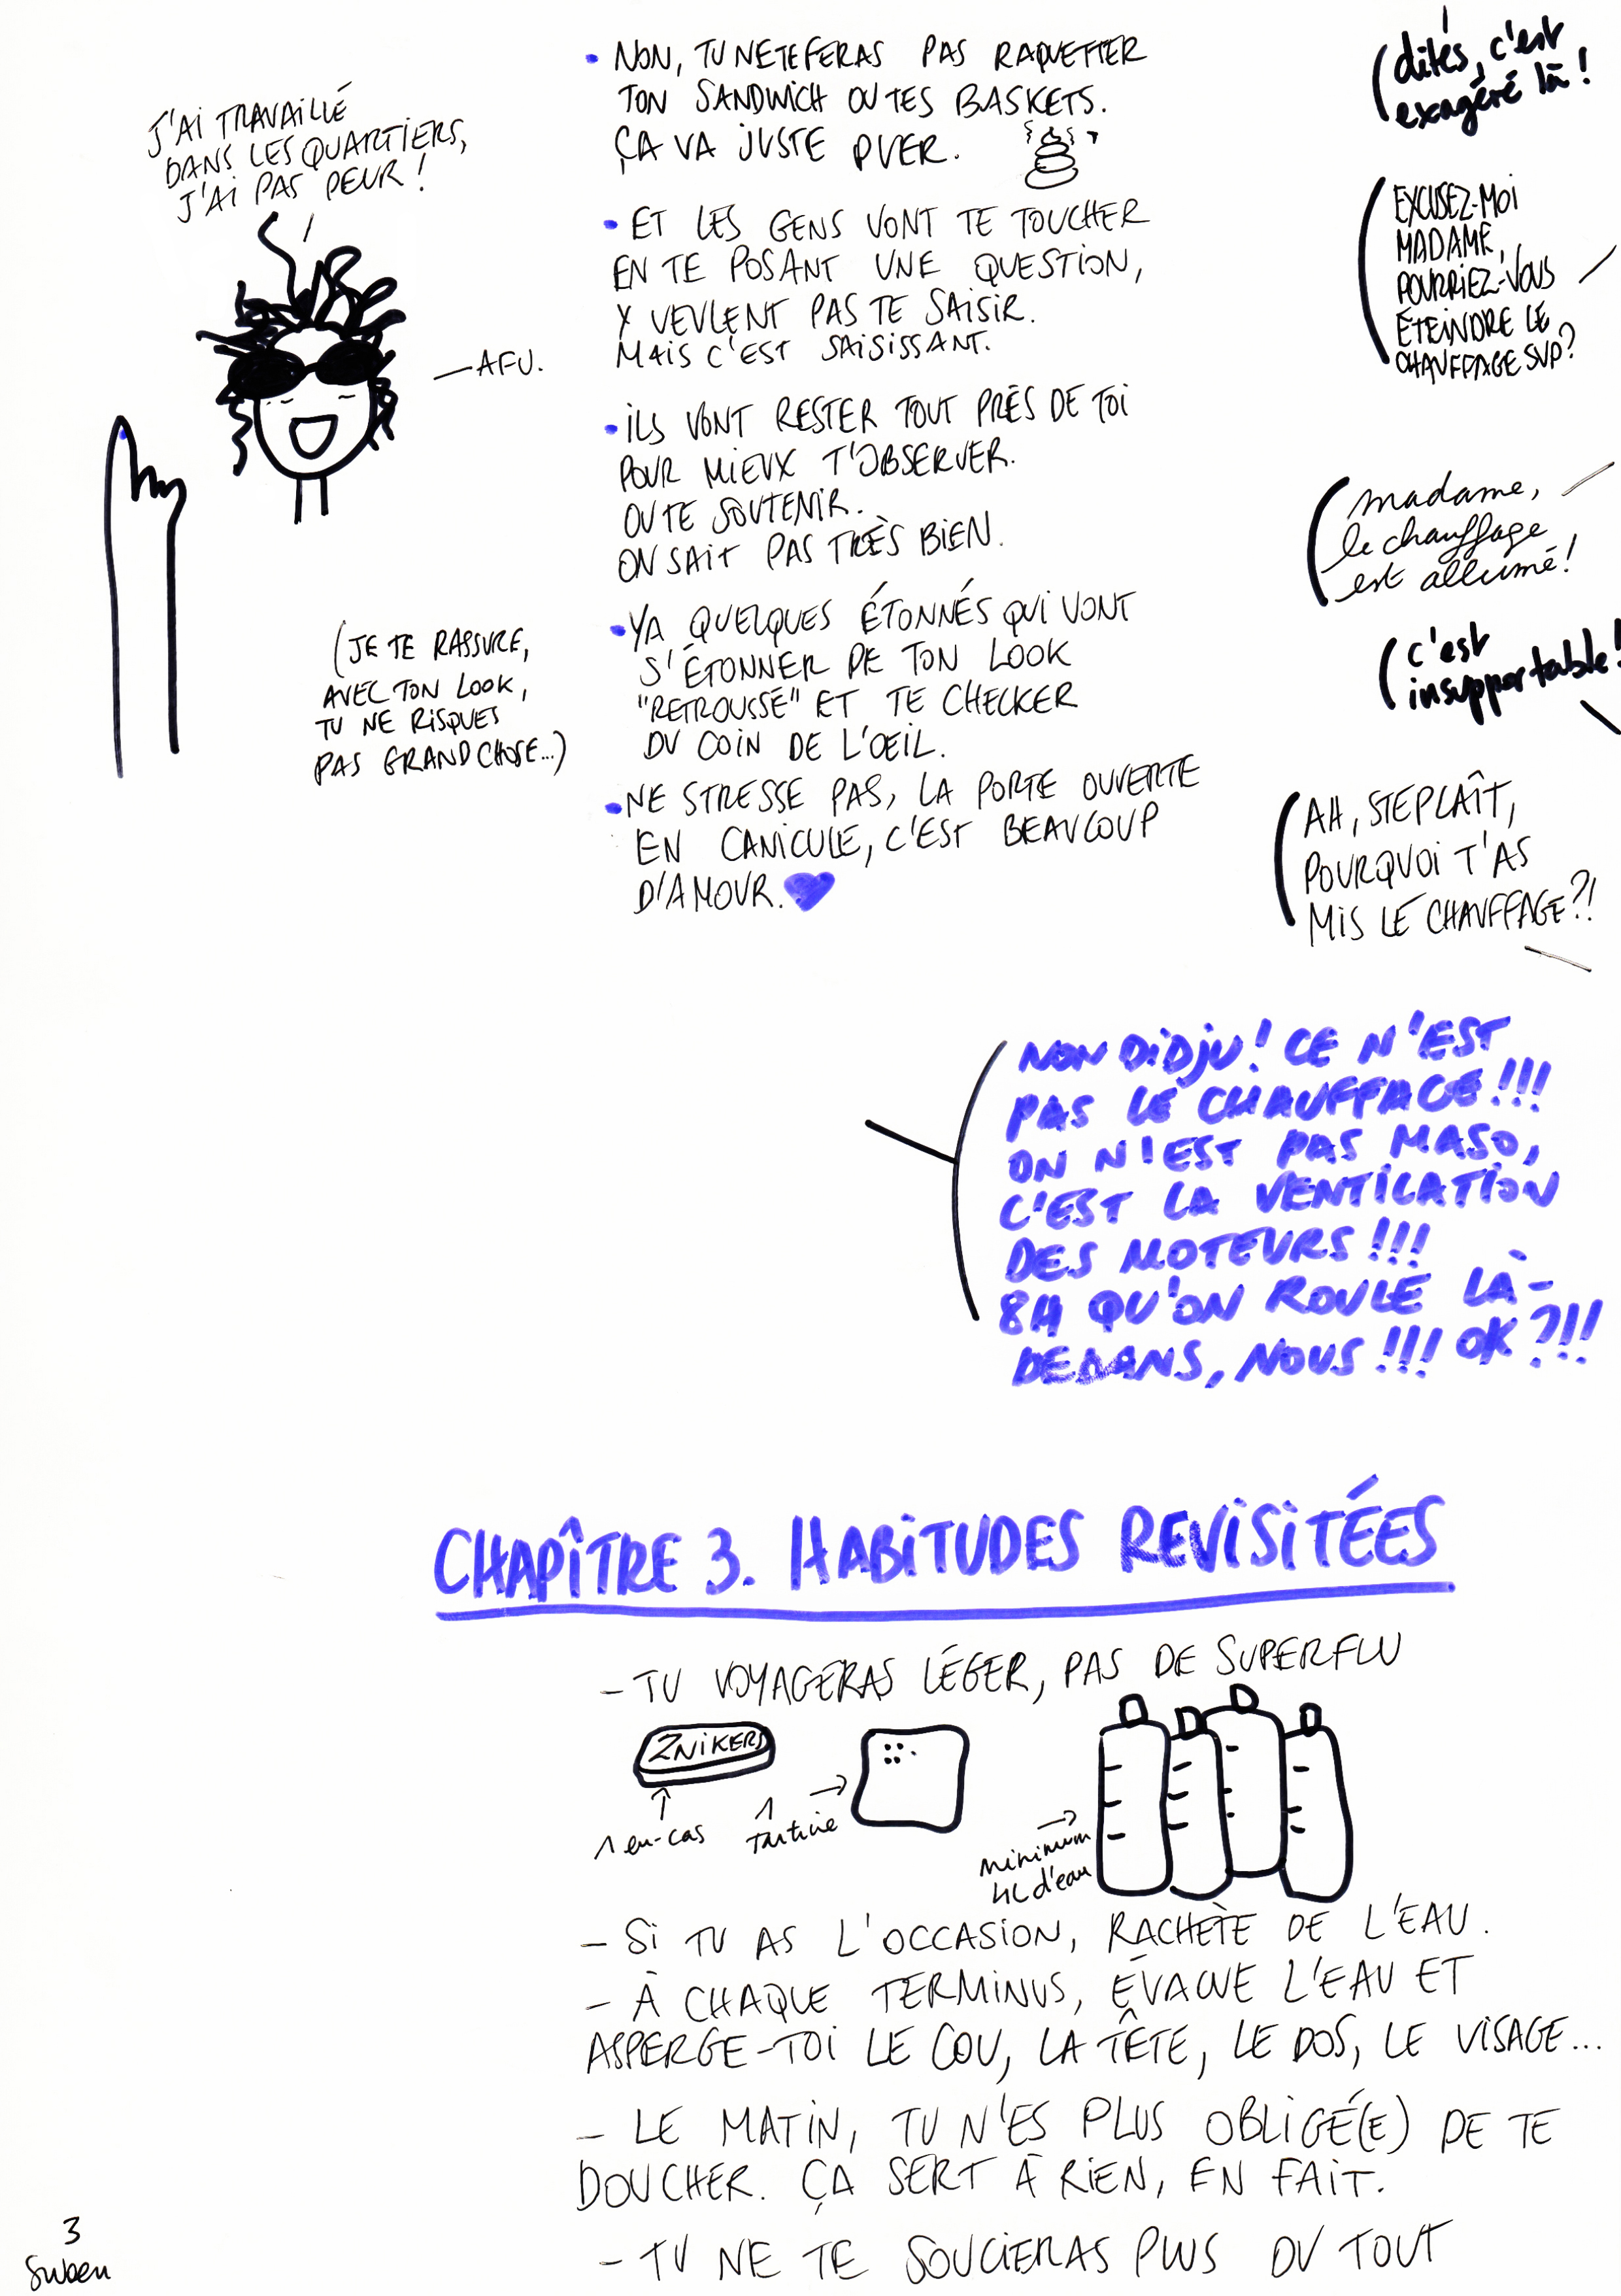 J'AI TRAVAILLÉ
DANS LES QUARTIERS,
J'AI PAS PEUR !
— AFU.
(JE TE RASSURE,
AVEC TON LOOK,
TU NE RISQUES
PAS GRAND CHOSE...)
• NON, TU NE TE FERAS PAS RAQUETTER
TON SANDWICH OU TES BASKETS.
ÇA VA JUSTE PUER.
• ET LES GENS VONT TE TOUCHER
EN TE POSANT UNE QUESTION,
Y VEULENT PAS TE SAISIR.
MAIS C'EST SAISISSANT.
• ILS VONT RESTER TOUT PRÈS DE TOI
POUR MIEUX T'OBSERVER.
OU TE SOUTENIR.
ON SAIT PAS TRÈS BIEN.
• YA QUELQUES ÉTONNÉS QUI VONT
S'ÉTONNER DE TON LOOK
"RETROUSSÉ" ET TE CHECKER
DU COIN DE L'ŒIL.
• NE STRESSE PAS, LA PORTE OUVERTE
EN CANICULE, C'EST BEAUCOUP
D'AMOUR.
dités, c'est
exagéré là !
EXCUSEZ-MOI
MADAME,
POURRIEZ-VOUS
ÉTEINDRE LE
CHAUFFAGE SVP?
madame,
le chauffage
est allumé !
c'est
insupportable!
AH, STEPLAÎT,
POURQUOI T'AS
MIS LE CHAUFFAGE?!
NON DIDJU! CE N'EST
PAS LE CHAUFFAGE!!!
ON N'EST PAS MASO,
C'EST LA VENTILATION
DES MOTEURS!!!
8H QU'ON ROULE LÀ-
DEDANS, NOUS!!! OK?!!!
CHAPÎTRE 3. HABITUDES REVISITÉES
- TU VOYAGERAS LÉGER, PAS DE SUPERFLU
ZNIKERS
1 en-cas
1 tartine
minimum
4L d'eau
- SI TU AS L'OCCASION, RACHÈTE DE L'EAU.
- À CHAQUE TERMINUS, ÉVACUE L'EAU ET
ASPERGE-TOI LE COU, LA TÊTE, LE DOS, LE VISAGE...
- LE MATIN, TU N'ES PLUS OBLIGÉ(E) DE TE
DOUCHER. ÇA SERT À RIEN, EN FAIT.
- TU NE TE SOUCIERAS PLUS DU TOUT
3